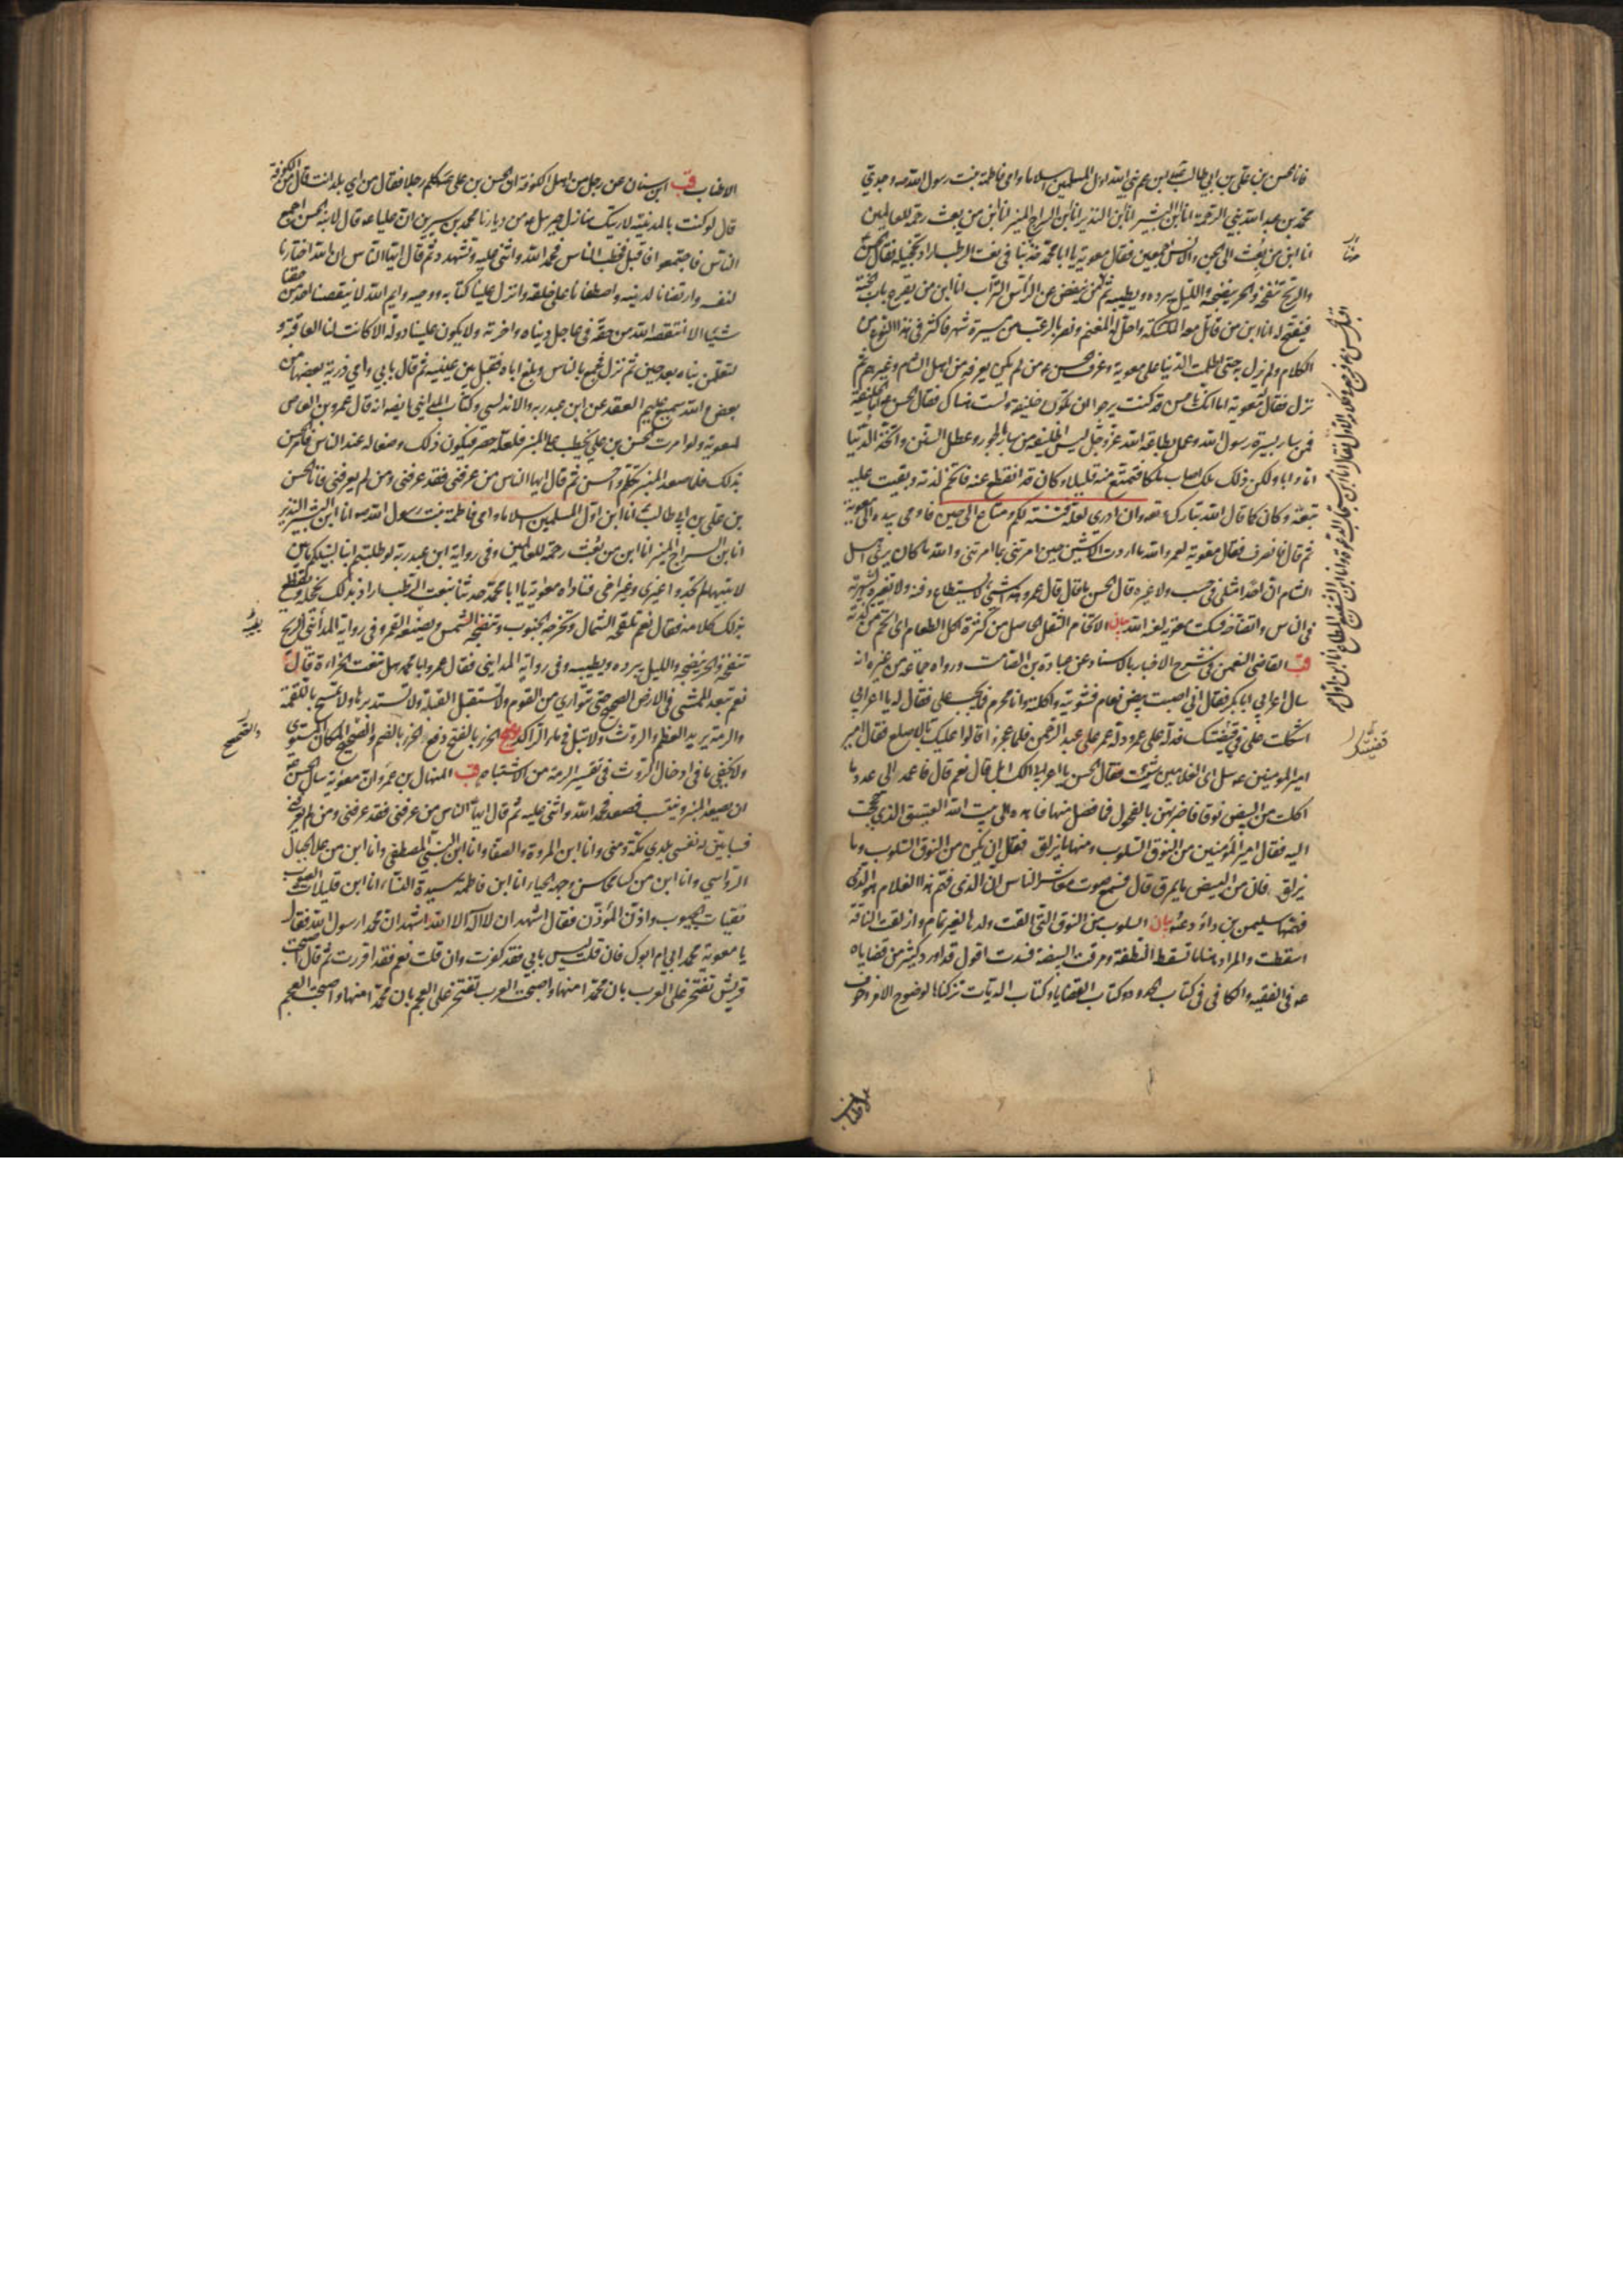 فانا الحسن بن علي بن ابي طالب ابن عم نبي الله اول المسلمين اسلاما وامي فاطمة بنت رسول الله ص وجدي
محمد بن عبد الله نبي الرحمة انا ابن البشير انا ابن النذير انا ابن السراج المنير انا ابن من بعث رحمة للعالمين
انا ابن من بعث الى الجن والانس اجمعين فقال معوية يا ابا محمد خذ بنا في نعت الرطب اراد تخجيله فقال الحسن
والريح تنفخه والحر ينضجه والليل يبرده ويطيبه ثم على رغم الراس التراب انا ابن من يقرع باب الجنة
فيفتح له انا ابن من قاتل معه الملئكة واحل له المغنم ونصر بالرعب من مسيرة شهر فاكثر في هذا النوع من
الكلام ولم يزل به حتى اظلمت الدنيا على معوية وعرف الحسن ع من لم يكن يعرفه من اهل الشام وغيرهم ثم
نزل فقال له معوية اما انك يا حسن قد كنت ترجو ان تكون خليفة ولست هناك فقال الحسن ع اما الخليفة
فمن سار بسيرة رسول الله وعمل بطاعة الله عز وجل ليس الخليفة من سار بالجور وعطل السنن واتخذ الدنيا
اما وابا ولكن ذلك ملك اصاب ملكا فتمتع منه قليلا وكان قد انقطع عنه فاتخم لذته وبقيت عليه
تبعته وكان كما قال الله تبارك وتعه وان ادري لعله فتنة لكم ومتاع الى حين فاومى بيده الى معوية
ثم قام فانصرف فقال معوية لعمرو والله ما اردت الا شيني حين امرتني بما امرتني والله ما كان يرى اهل
الشام ان احدا مثلي في حسب ولا غيره حتى قال الحسن ما قال قال عمرو هذا شيء لا يستطاع دفنه ولا تغييره لشهرته
في الناس واتضاحه فسكت معوية لعنه الله بيان الاتخام الثقل الحاصل من كثرة اكل الطعام اي اتخم من كثرة لذته
قب القاضي النعمن في شرح الاخبار بالاسناد عن عبادة بن الصامت ورواه جماعة من غيره انه
سال اعرابي ابا بكر فقال اني اصبت بيض نعام فشويته واكلته وانا محرم فما يجب علي فقال له يا اعرابي
اشكلت علي في قضيتك فدله على عمر ودله عمر على عبد الرحمن فلما عجزوا قالوا عليك بالاصلع فقال امير
امير المومنين ع سل اي الغلامين شئت فقال الحسن يا اعرابي الك ابل قال نعم قال فاعمد الى عدد ما
اكلت من البيض نوقا فاضربهن بالفحول فما فضل منها فاهده الى بيت الله العتيق الذي حججت
اليه فقال امير المؤمنين ان من النوق السلوب ومنها ما يزلق فقال ان يكن من النوق السلوب وما
يزلق فان من البيض ما يمرق قال فسمع صوت معاشر الناس ان الذي فهم هذا الغلام هو الذي
فهمها سليمن بن داود بيان السلوب من النوق التي القت ولدها لغير تمام وازلقت الناقة
اسقطت والمراد هنا ما تسقط النطفة ومرقت البيضة فسدت اقول قد اورد كثير من قضاياه
ع في الفقيه والكافي في كتاب الحدود وكتاب القضايا وكتاب الديات تركناها لوضوح الامر وخوف
الاطناب قب ابن سنان عن رجل من اهل الكوفة ان الحسن بن علي ع كلم رجلا فقال من اي بلد انت قال من الكوفة
قال لو كنت بالمدينة لاريتك منازل جبرئيل ع من ديارنا محمد بن سيرين ان عليا ع قال لابنه الحسن اجمع
الناس فاجتمعوا فاقبل فخطب الناس فحمد الله واثنى عليه وتشهد ثم قال ايها الناس ان الله اختارنا
لنفسه وارتضانا لدينه واصطفانا على خلقه وانزل علينا كتابه ووحيه وايم الله لا ينقصنا احد من حقنا
شيئا الا انتقصه الله من حقه في عاجل دنياه واخرته ولا يكون علينا دولة الا كانت لنا العاقبة و
لتعلمن نباه بعد حين ثم نزل فجمع بالناس وبلغ اباه فقبل بين عينيه ثم قال بابي وامي ذرية بعضها من
بعض والله سميع عليم العقد عن ابن عبد ربه الاندلسي وكتاب المدايني ايضه انه قال عمرو بن العاص
لمعوية لو امرت الحسن بن علي يخطب على المنبر فلعله حصر فيكون ذلك وضعا له عند الناس فامر الحسن
بذلك فلما صعد المنبر تكلم واحسن ثم قال ايها الناس من عرفني فقد عرفني ومن لم يعرفني فانا الحسن
بن علي بن ابي طالب انا ابن اول المسلمين اسلاما وامي فاطمة بنت رسول الله ص انا ابن البشير النذير
انا ابن السراج المنير انا ابن من بعث رحمة للعالمين وفي رواية ابن عبد ربه لو طلبتم ابنا لنبيكم ما بين
لابتيها لم تجدوا غيري وغير اخي فناداه معوية يا ابا محمد حدثنا بنعت الرطب اراد بذلك يخجله ويقطع
بذلك كلامه فقال نعم تلقحه الشمال وتخرجه الجنوب وتنضجه الشمس ويصنعه القمر وفي رواية المدائني الريح
تنفخه والحر ينضجه والليل يبرده ويطيبه وفي رواية المدايني فقال عمرو ابا محمد هل تنعت الخراءة قال
نعم تبعد الممشى في الارض الصحصح حتى تتوارى من القوم ولا تستقبل القبلة ولا تستدبرها ولا تمسح باللقمة
والرمة يريد العظم والروث ولا تبل في الماء الراكد توضيح الخرء بالفتح دفع الخرء بالضم والصحصح المكان المستوي
ولا يخفى ما في ادخال الروث في تفسير الرمة من الاشتباه قب المنهال بن عمرو ان معوية سال الحسن ع
ان يصعد المنبر وينتسب فصعد فحمد الله واثنى عليه ثم قال ايها الناس من عرفني فقد عرفني ومن لم يعرفني
فسابين له نفسي بلدي مكة ومنى وانا ابن المروة والصفا وانا ابن النبي المصطفى وانا ابن من علا الجبال
الرواسي وانا ابن من كسا محاسن وجهه الحياء انا ابن فاطمة سيدة النساء انا ابن قليلات العيوب
نقيات الجيوب واذن المؤذن فقال اشهد ان لا اله الا الله اشهد ان محمدا رسول الله فقال
يا معوية محمد ابي ام ابوك فان قلت ليس بابي فقد كفرت وان قلت نعم فقد اقررت ثم قال اصبحت
قريش تفتخر على العرب بان محمدا منها واصبحت العرب تفتخر على العجم بان محمدا منها واصبحت العجم